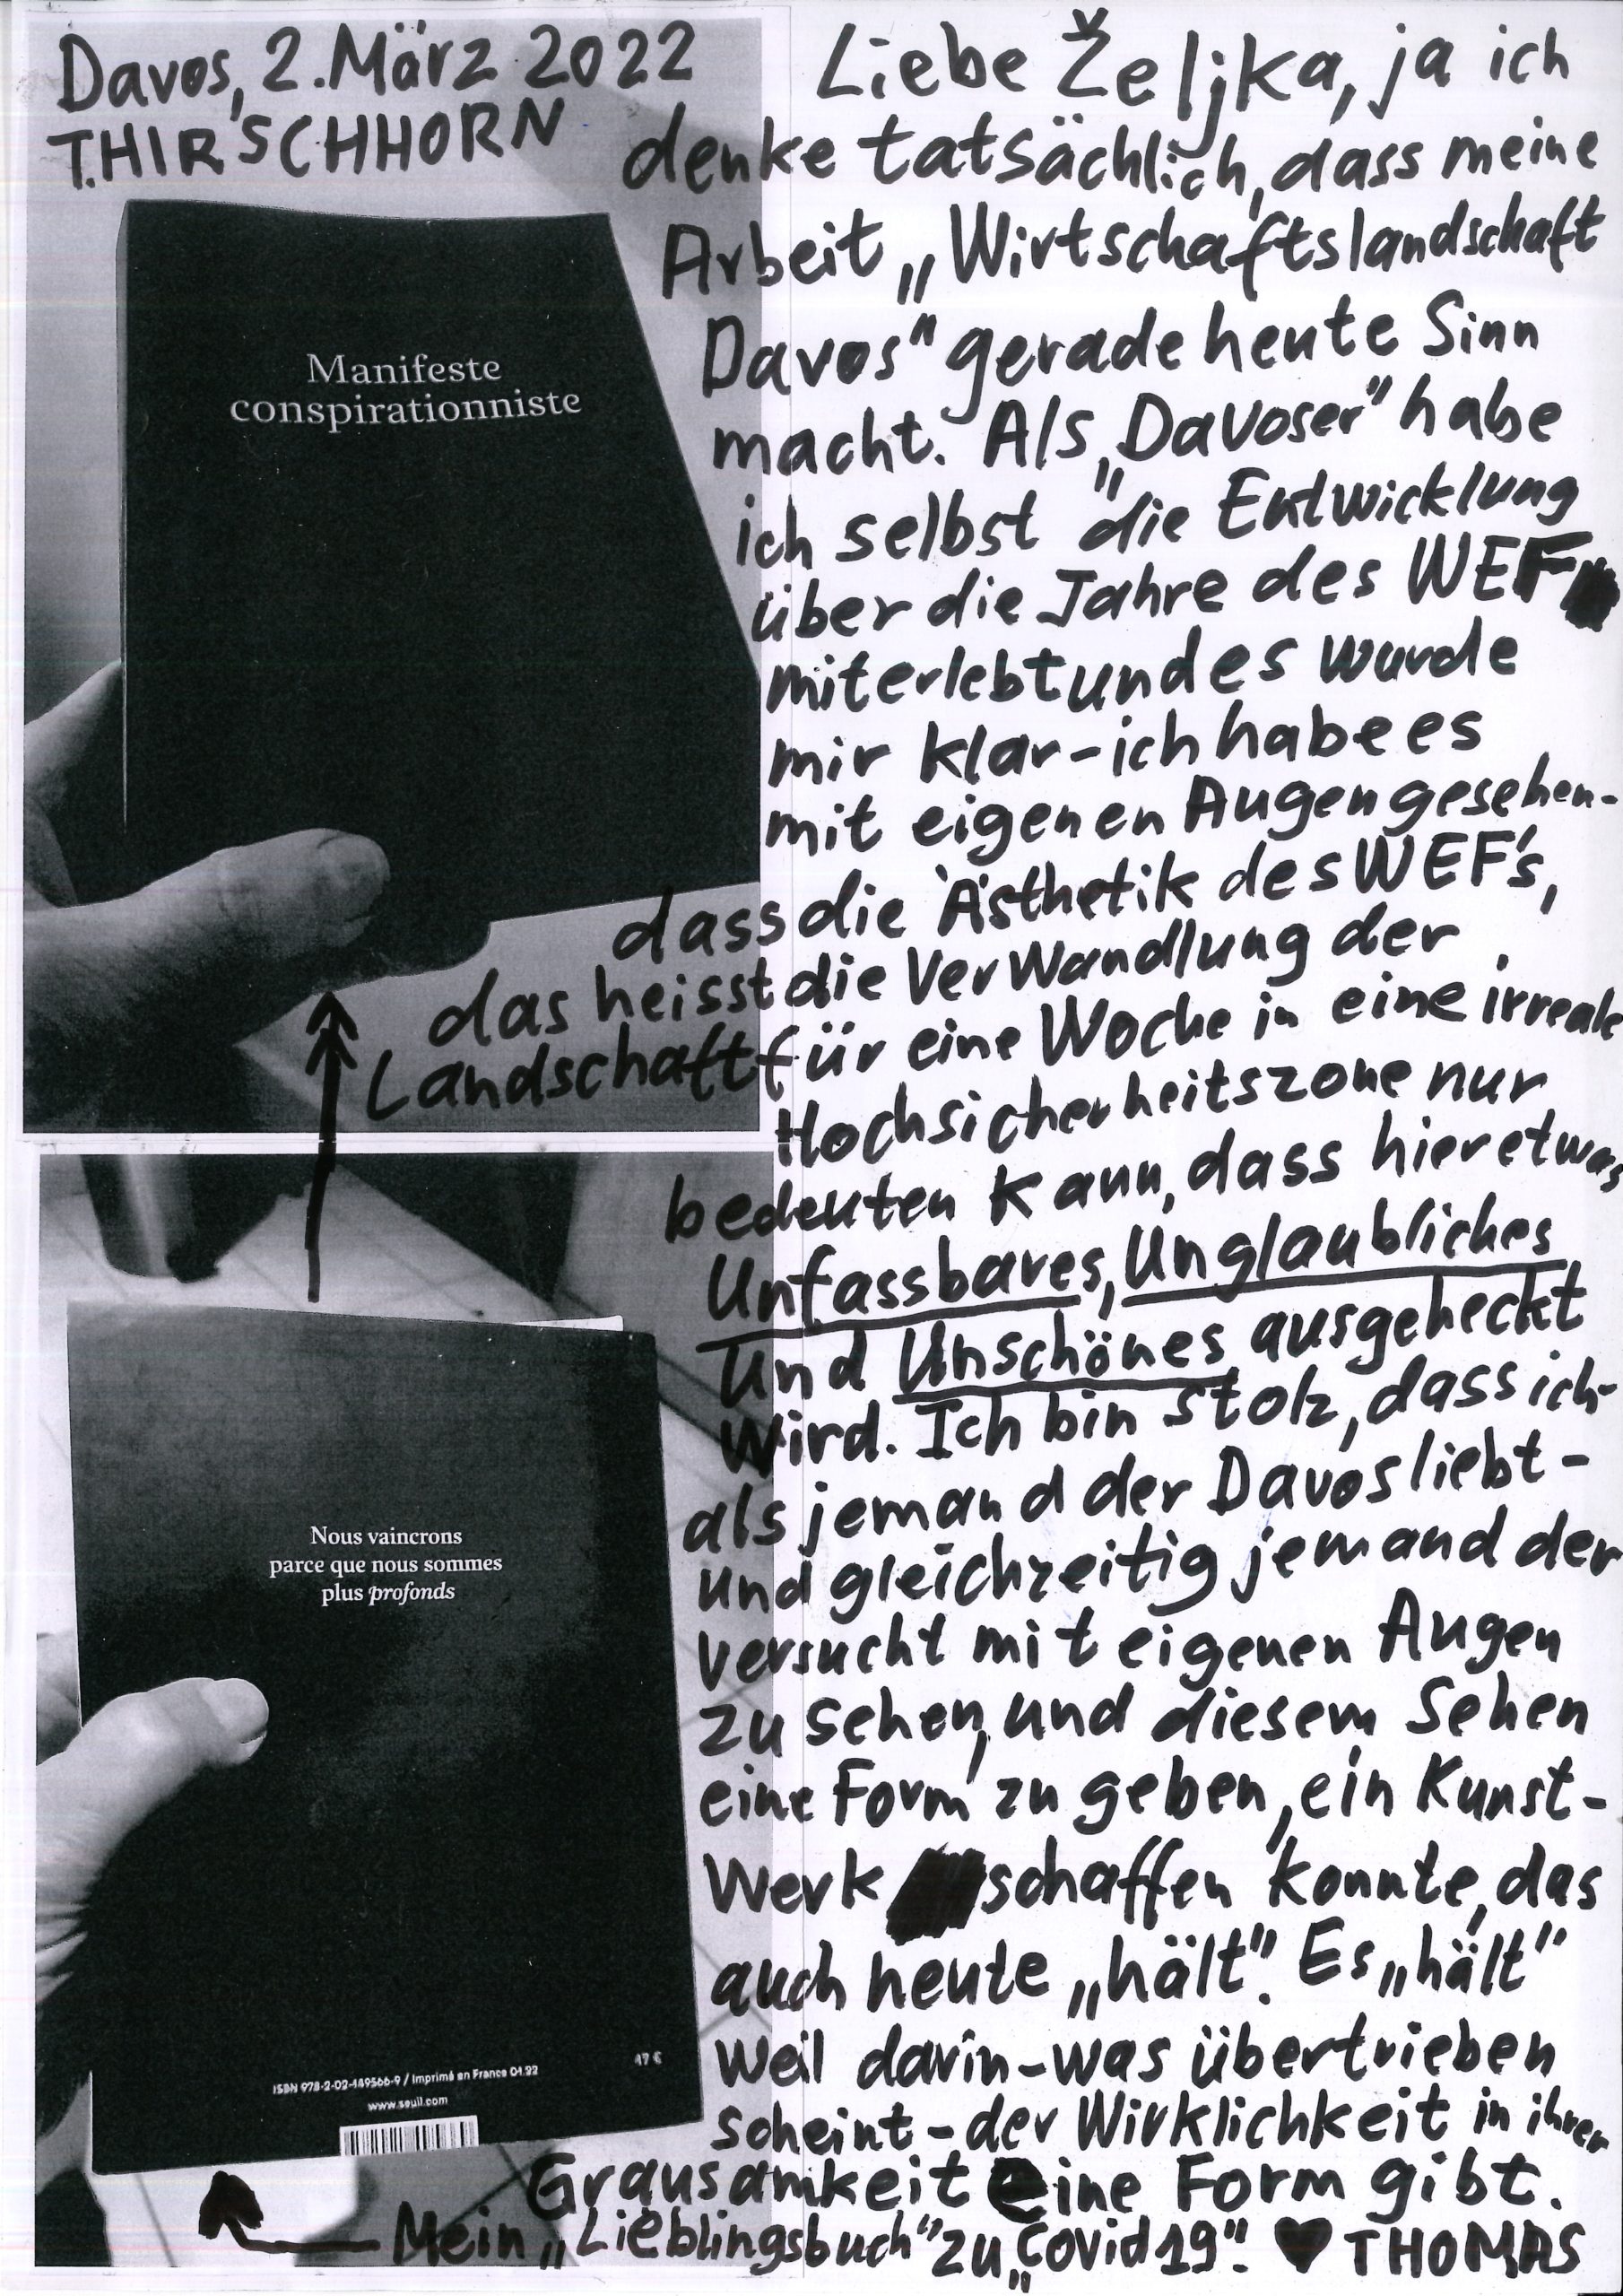 Davos, 2. März 2022
T.HIRSCHHORN
Manifeste
conspirationniste
Liebe Željka, ja ich
denke tatsächlich, dass meine
Arbeit „Wirtschaftslandschaft
Davos" gerade heute Sinn
macht. Als „Davoser" habe
ich selbst die Entwicklung
über die Jahre des WEF
miterlebt und es wurde
mir klar - ich habe es
mit eigenen Augen gesehen -
dass die Ästhetik des WEF's,
das heisst die Verwandlung der
Landschaft für eine Woche in eine irreale
Hochsicherheitszone nur
bedeuten kann, dass hier etwas
Unfassbares, Unglaubliches
und Unschönes ausgeheckt
wird. Ich bin stolz, dass ich -
als jemand der Davos liebt -
und gleichzeitig jemand der
versucht mit eigenen Augen
zu sehen, und diesem Sehen
eine Form zu geben, ein Kunst-
werk schaffen konnte, das
auch heute „hält". Es „hält"
weil darin - was übertrieben
scheint - der Wirklichkeit in ihrer
Grausamkeit eine Form gibt.
Nous vaincrons
parce que nous sommes
plus profonds
17 €
ISBN 978-2-02-149566-9 / Imprimé en France 01.22
www.seuil.com
Mein „Lieblingsbuch" zu „Covid19". ♥ THOMAS